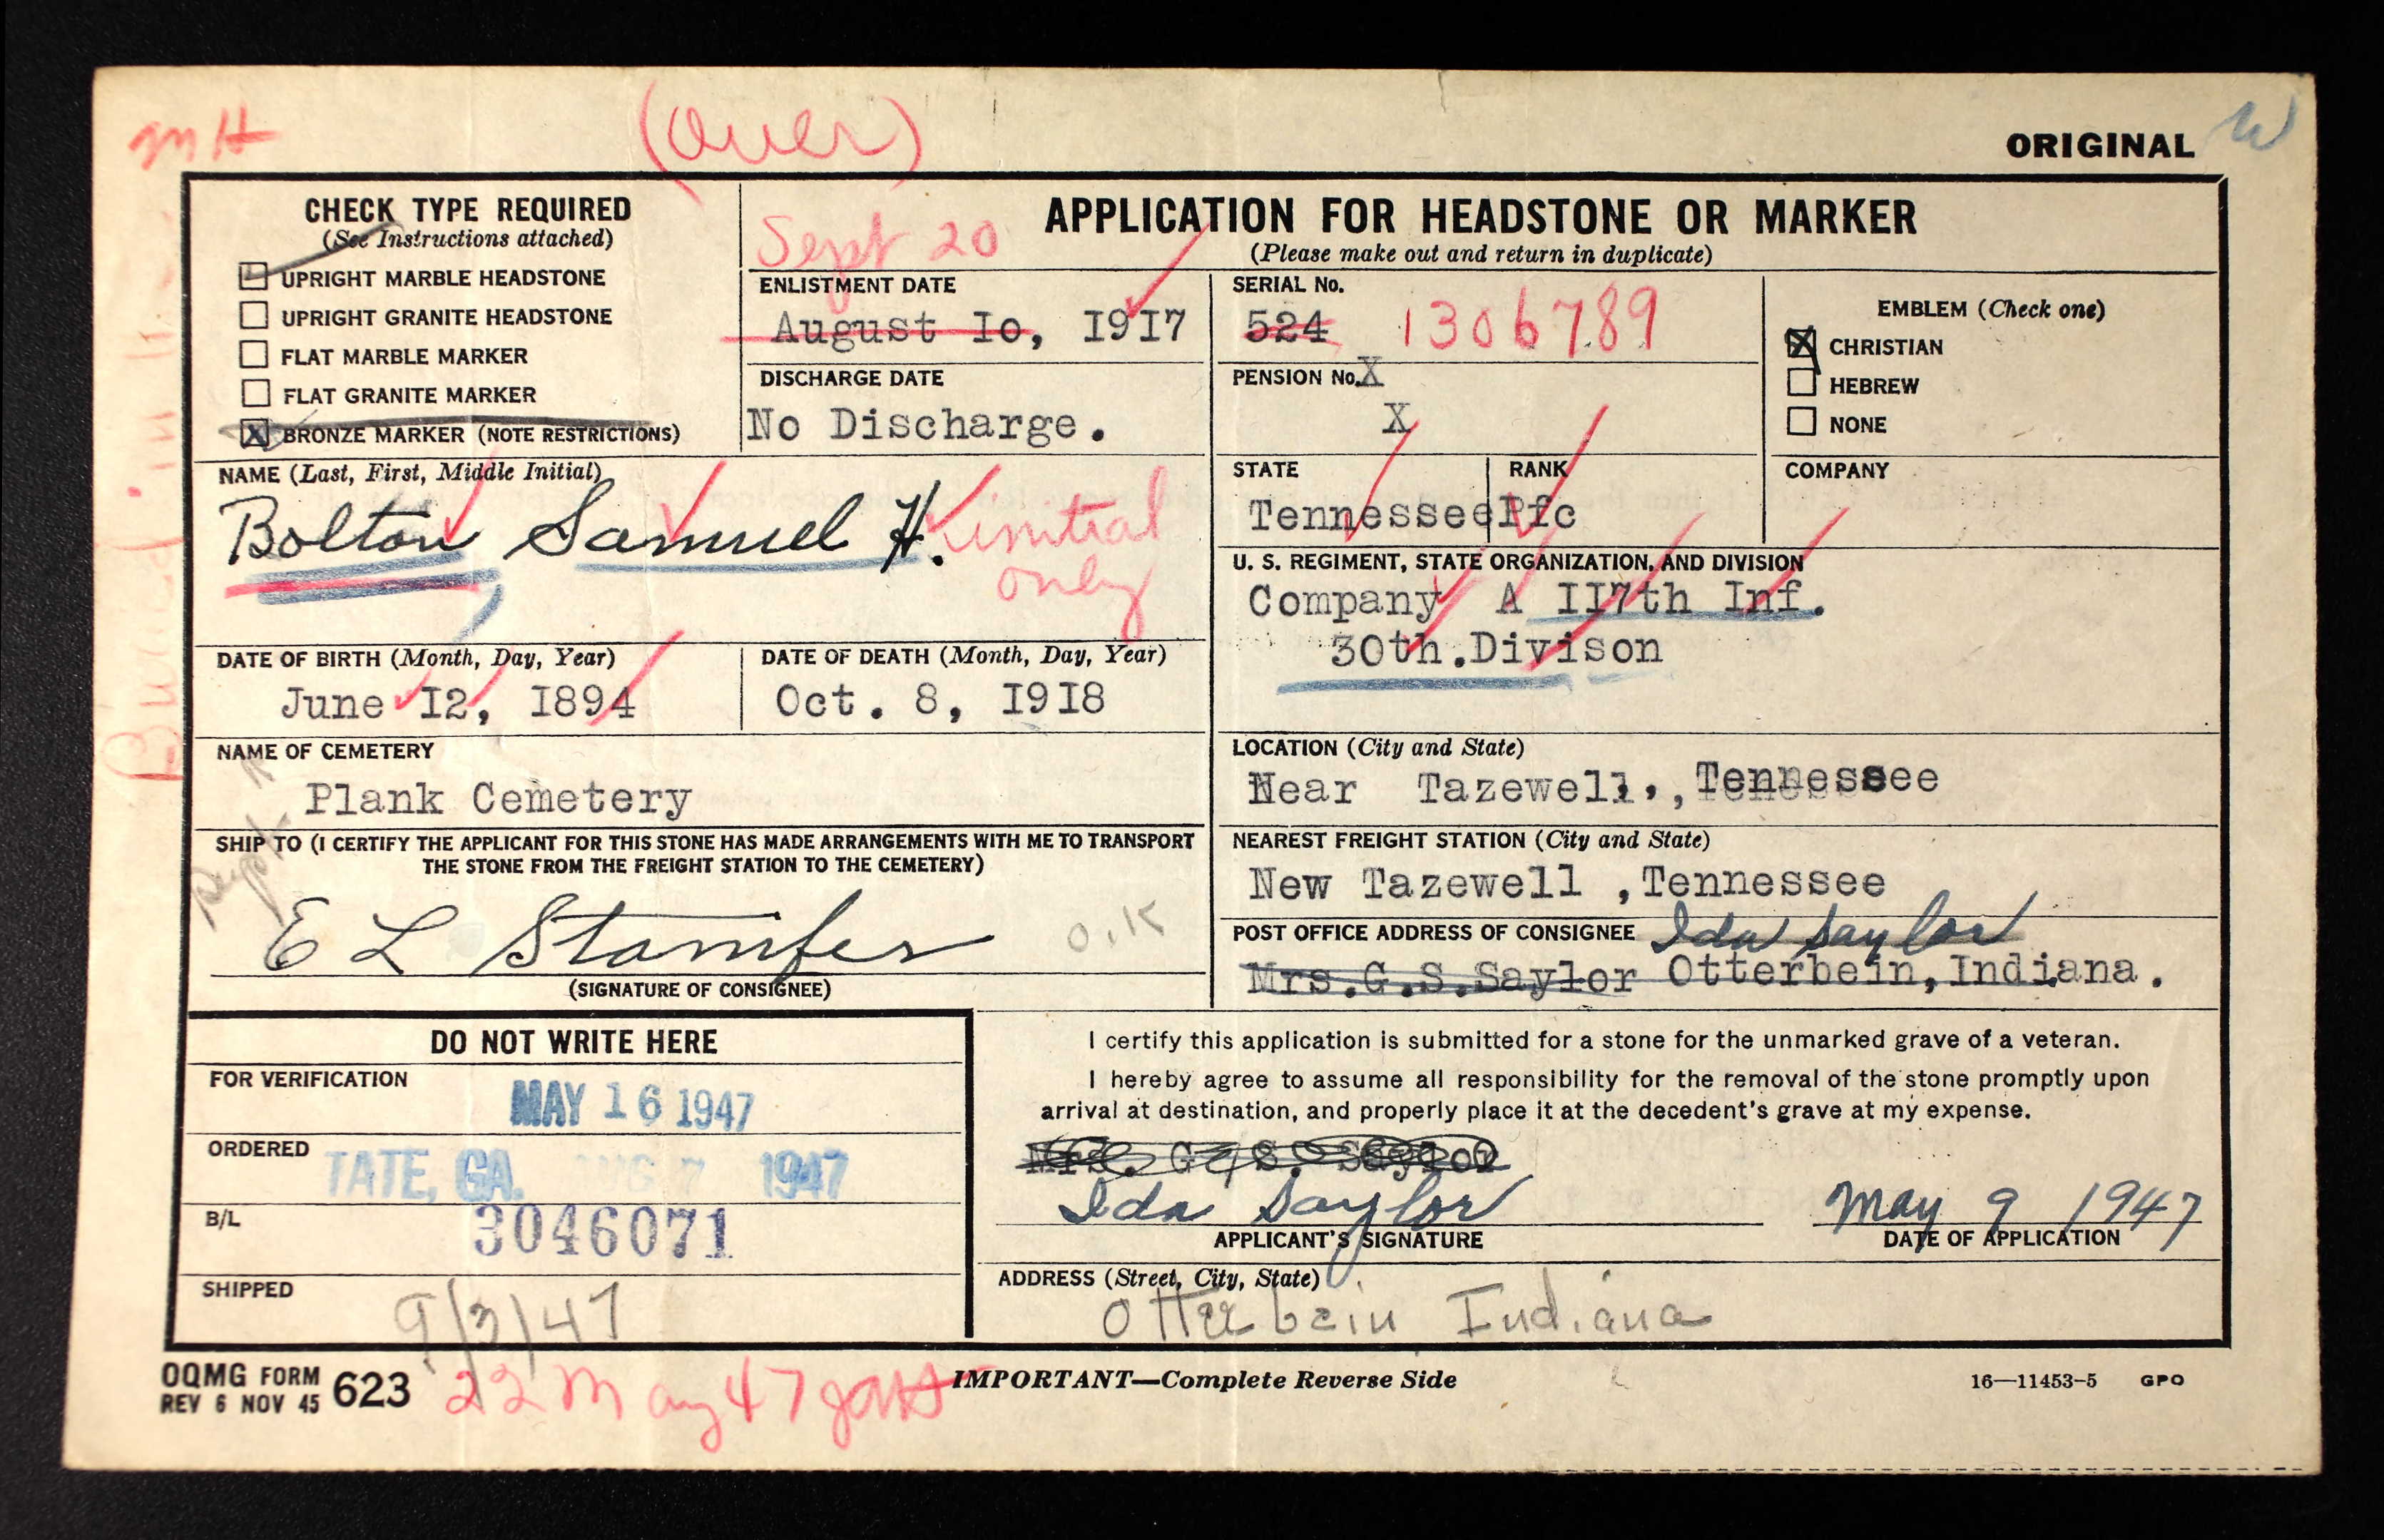 mH
(over)
ORIGINAL
W
CHECK TYPE REQUIRED
(See Instructions attached)
UPRIGHT MARBLE HEADSTONE
UPRIGHT GRANITE HEADSTONE
FLAT MARBLE MARKER
FLAT GRANITE MARKER
X BRONZE MARKER (NOTE RESTRICTIONS)
APPLICATION FOR HEADSTONE OR MARKER
(Please make out and return in duplicate)
Sept 20
ENLISTMENT DATE
August Io, I9I7
DISCHARGE DATE
No Discharge.
SERIAL No.
524 1306789
PENSION No. X
X
EMBLEM (Check one)
X CHRISTIAN
HEBREW
NONE
NAME (Last, First, Middle Initial)
Bolton Samuel H. initial
only
STATE
Tennessee
RANK
Pfc
COMPANY
U. S. REGIMENT, STATE ORGANIZATION, AND DIVISION
Company A II7th Inf.
30th.Divison
DATE OF BIRTH (Month, Day, Year)
June I2, I894
DATE OF DEATH (Month, Day, Year)
Oct. 8, I9I8
NAME OF CEMETERY
Plank Cemetery
LOCATION (City and State)
Near Tazewell,, Tennessee
SHIP TO (I CERTIFY THE APPLICANT FOR THIS STONE HAS MADE ARRANGEMENTS WITH ME TO TRANSPORT
THE STONE FROM THE FREIGHT STATION TO THE CEMETERY)
E L Stamfer
O.K
(SIGNATURE OF CONSIGNEE)
NEAREST FREIGHT STATION (City and State)
New Tazewell ,Tennessee
POST OFFICE ADDRESS OF CONSIGNEE Ida Saylor
Mrs.G.S.Saylor Otterbein,Indiana.
DO NOT WRITE HERE
FOR VERIFICATION
MAY 16 1947
ORDERED
TATE, GA. AUG 7 1947
B/L
3046071
SHIPPED
9/3/47
I certify this application is submitted for a stone for the unmarked grave of a veteran.
I hereby agree to assume all responsibility for the removal of the stone promptly upon
arrival at destination, and properly place it at the decedent's grave at my expense.
Mrs. G. S. Saylor
Ida Saylor
APPLICANT'S SIGNATURE
May 9 1947
DATE OF APPLICATION
ADDRESS (Street, City, State)
Otterbein Indiana
OQMG FORM
REV 6 NOV 45 623
22 May 47
IMPORTANT—Complete Reverse Side
16—11453-5 GPO
Buried in